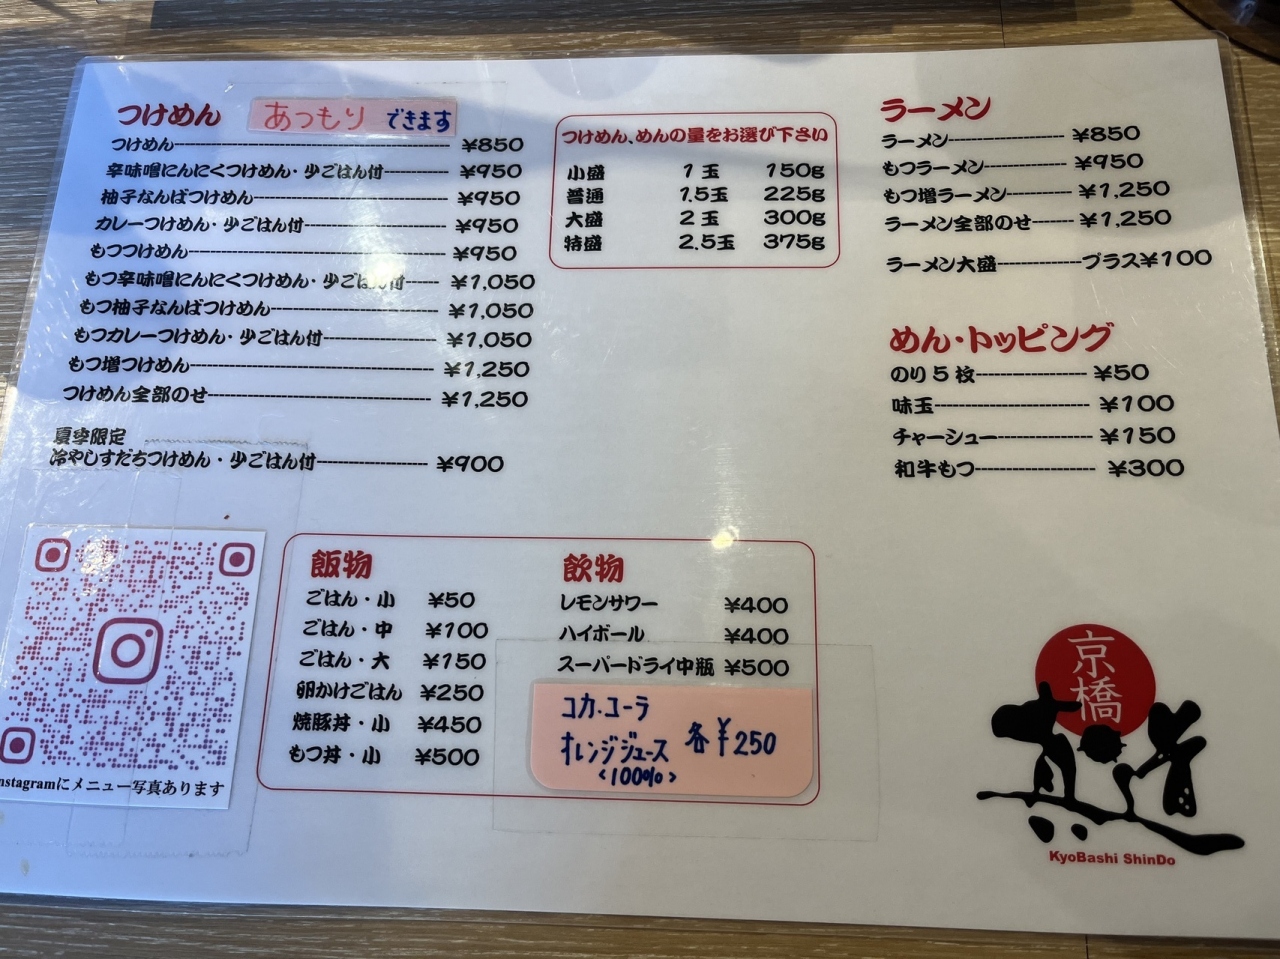 つけめん あつもり できます
つけめん ¥850
辛味噌にんにくつけめん・少ごはん付 ¥950
柚子なんばつけめん ¥950
カレーつけめん・少ごはん付 ¥950
もつつけめん ¥950
もつ辛味噌にんにくつけめん・少ごはん付 ¥1,050
もつ柚子なんばつけめん ¥1,050
もつカレーつけめん・少ごはん付 ¥1,050
もつ増つけめん ¥1,250
つけめん全部のせ ¥1,250
夏季限定
冷やしすだちつけめん・少ごはん付 ¥900
つけめん、めんの量をお選び下さい
小盛 1玉 150g
普通 1.5玉 225g
大盛 2玉 300g
特盛 2.5玉 375g
ラーメン
ラーメン ¥850
もつラーメン ¥950
もつ増ラーメン ¥1,250
ラーメン全部のせ ¥1,250
ラーメン大盛 プラス¥100
めん・トッピング
のり5枚 ¥50
味玉 ¥100
チャーシュー ¥150
和牛もつ ¥300
nstagramにメニュー写真あります
飯物
ごはん・小 ¥50
ごはん・中 ¥100
ごはん・大 ¥150
卵かけごはん ¥250
焼豚丼・小 ¥450
もつ丼・小 ¥500
飲物
レモンサワー ¥400
ハイボール ¥400
スーパードライ中瓶 ¥500
コカ・コーラ
オレンジジュース 各¥250
<100%>
京橋
KyoBashi ShinDo